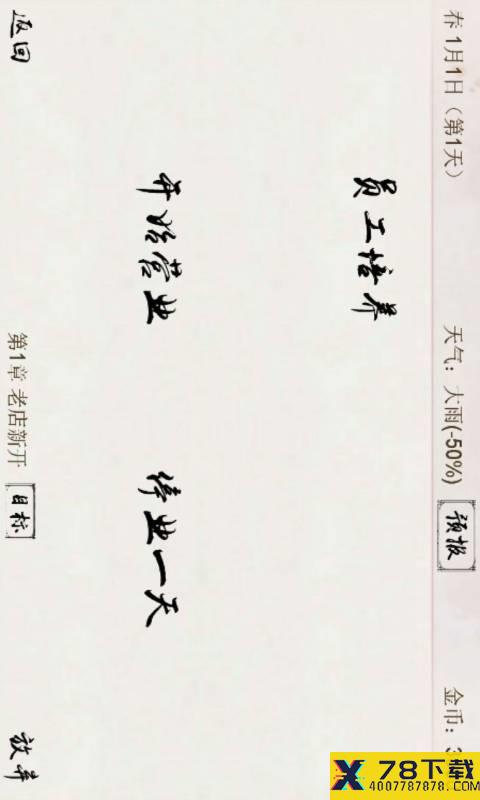 春 1月1日（第1天）
天气：大雨(-50%)
预报
金币：
员工培养
开始营业
停业一天
返回
第1章 老店新开
目标
放弃
78下载
4007787878.COM